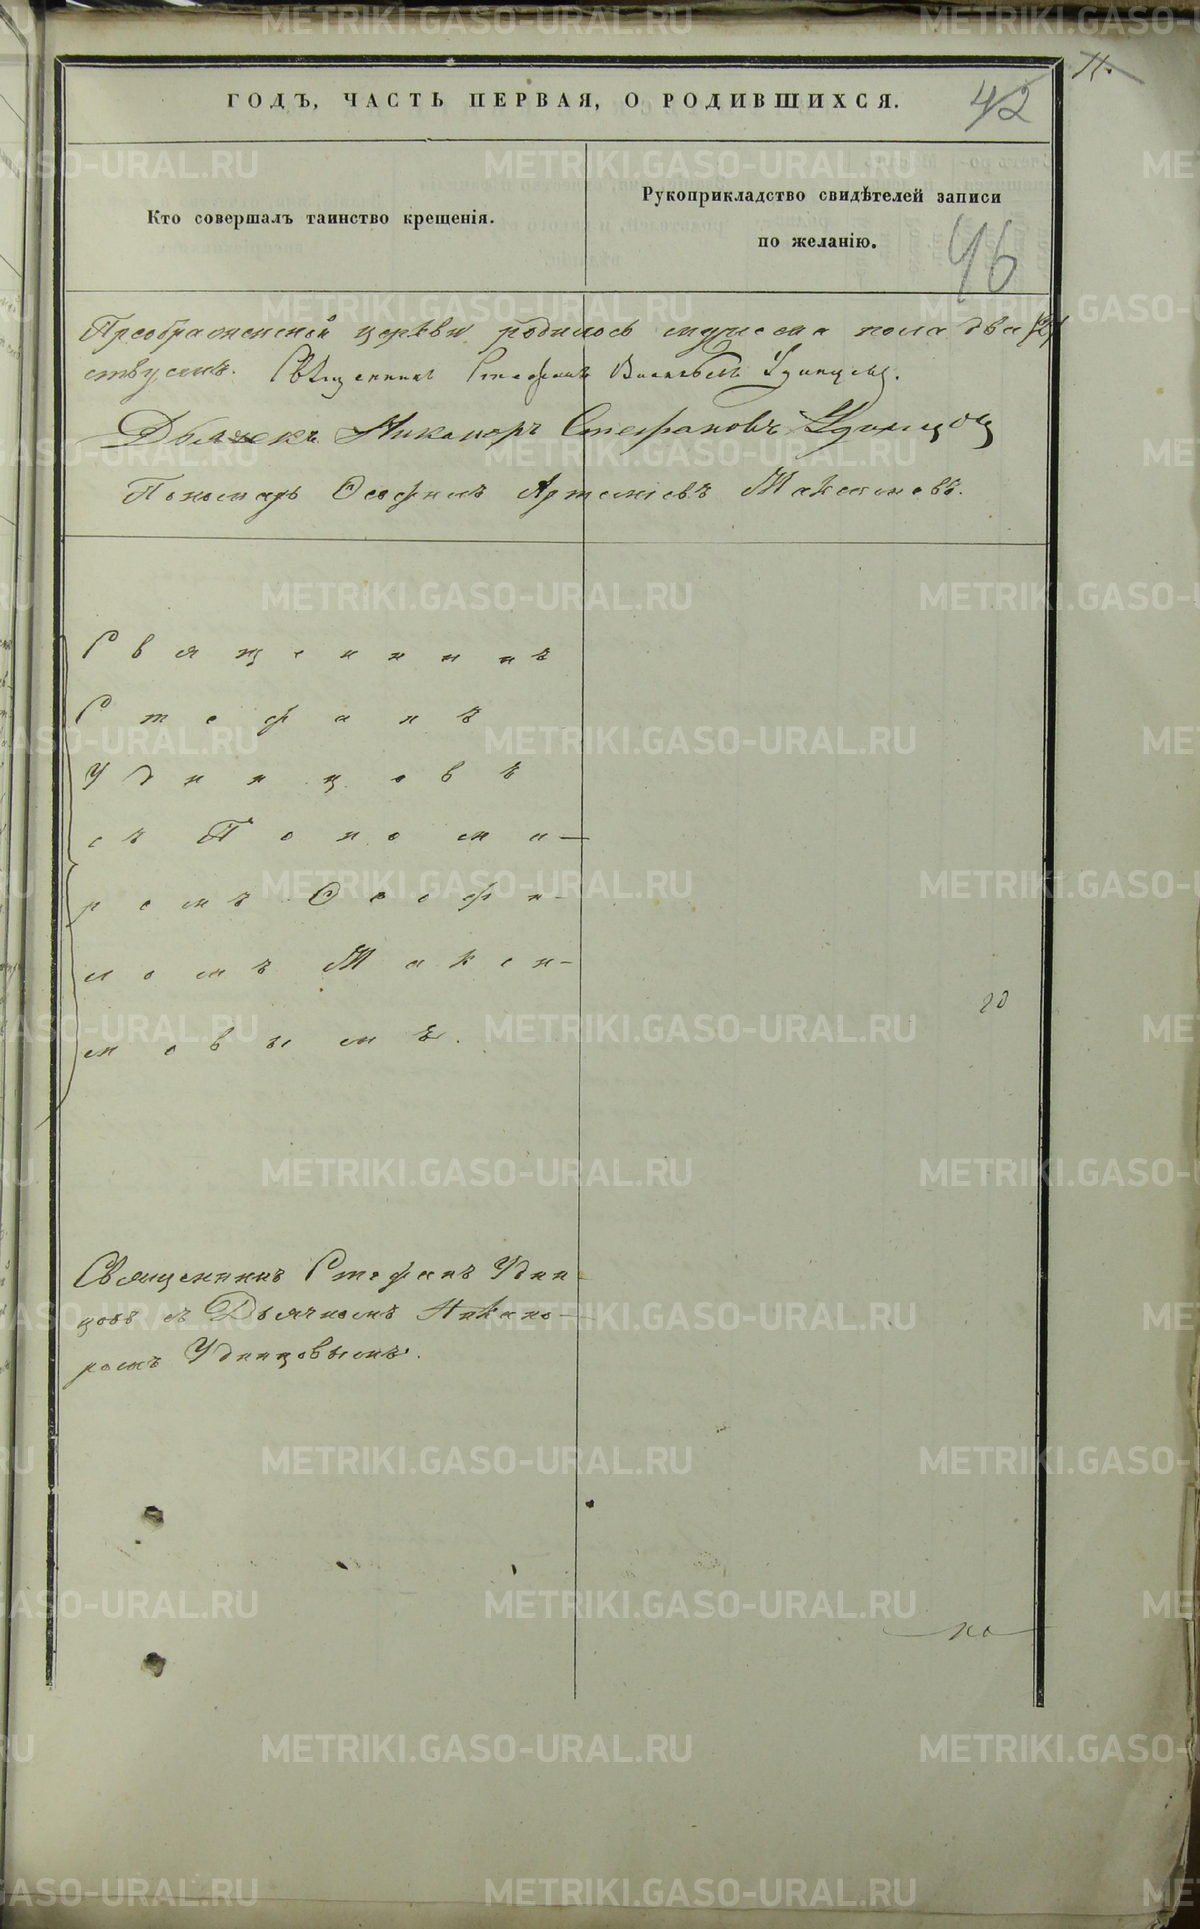 ГОДЪ, ЧАСТЬ ПЕРВАЯ, О РОДИВШИХСЯ.
42
Кто совершалъ таинство крещенія.
Рукоприкладство свидѣтелей записи
по желанію.
46
Преображенской церкви родилось мужеска пола два /2/
ствуемъ. Священникъ Стефанъ Удинцевъ.
Дьячекъ Никаноръ Стефановъ Удинцов
Пономарь Ѳеофилъ Артемьевъ Максимовъ.
Священникъ
Стефанъ
Удинцовъ
съ Понома-
ремъ Ѳеофи-
ломъ Макси-
мовымъ.
20
Священникъ Стефанъ Удин-
цовъ съ Дьячкомъ Никано-
ромъ Удинцовымъ.
по
METRIKI.GASO-URAL.RU